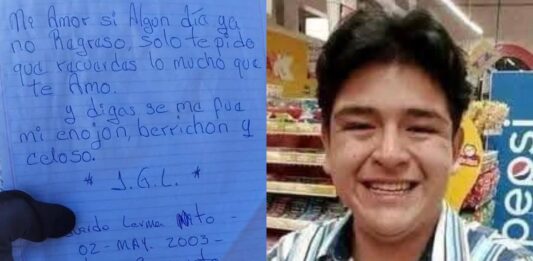 Me Amor si Algun día ya
no Regreso, solo te pido
que recuerdas lo mucho que
te Amo.
y digas se ma fua
mi enojón, berrichon y
celoso.
* J.G.L. *
Lerma
02-MAY-2003-
pepsi